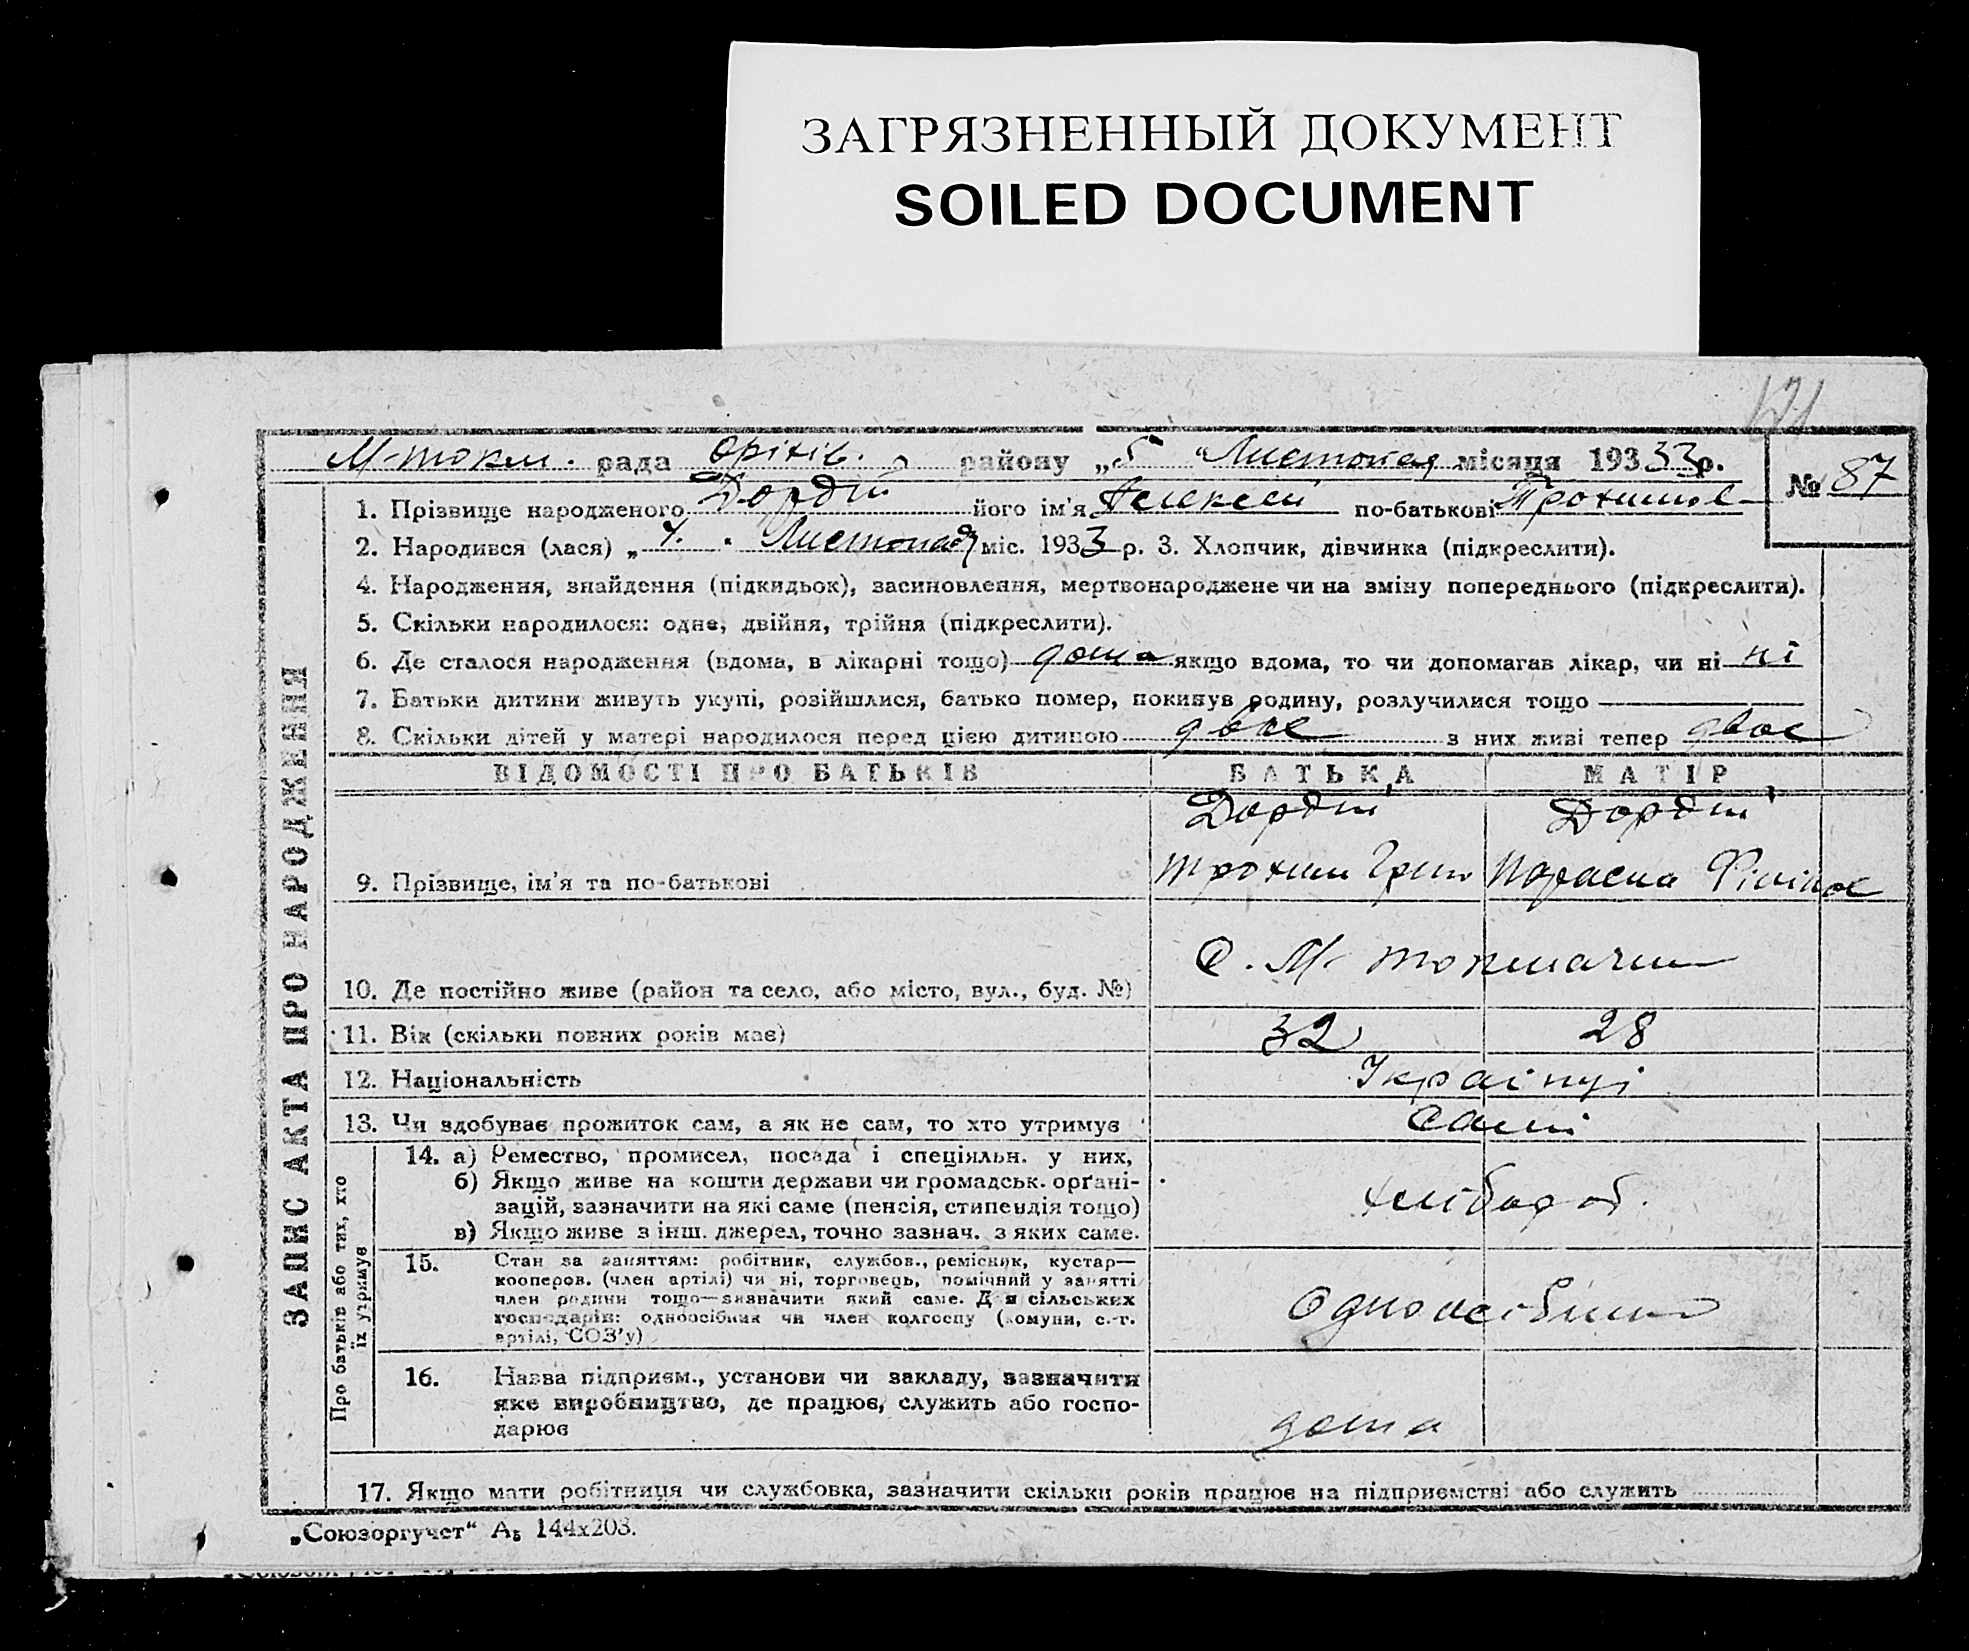 ЗАГРЯЗНЕННЫЙ ДОКУМЕНТ
SOILED DOCUMENT
121
М-токм. рада Оріхів. району „5 " Листопад місяця 193 33 р.
№ 87
1. Прізвище народженого Дордій його ім'я Алексей по-батькові Трохимов
2. Народився (лася) „ 4. " Листопад міс. 1933 р. 3. Хлопчик, дівчинка (підкреслити).
4. Народження, знайдення (підкидьок), засиновлення, мертвонароджене чи на зміну попереднього (підкреслити).
5. Скільки народилося: одне, двійня, трійня (підкреслити).
6. Де сталося народження (вдома, в лікарні тощо) дома якщо вдома, то чи допомагав лікар, чи ні ні
7. Батьки дитини живуть укупі, розійшлися, батько помер, покинув родину, розлучилися тощо
8. Скільки дітей у матері народилося перед цією дитиною двое з них живі тепер двое
ЗАПИС АКТА ПРО НАРОДЖЕННЯ
ВІДОМОСТІ ПРО БАТЬКІВ БАТЬКА МАТІР
Дордій Дордій
9. Прізвище, ім'я та по-батькові Трохим Григ Параска Філіпов
10. Де постійно живе (район та село, або місто, вул., буд. №) С. М- токмачик
11. Вік (скільки повних років має) 32 28
12. Національність Українці
13. Чи здобуває прожиток сам, а як не сам, то хто утримує самі
Про батьків або тих, хто
їх утримує
14. а) Ремество, промисел, посада і спеціяльн. у них,
б) Якщо живе на кошти держави чи громадськ. орґані-
зацій, зазначити на які саме (пенсія, стипендія тощо) хлібороб.
в) Якщо живе з інш. джерел, точно зазнач. з яких саме.
15. Стан за заняттям: робітник, службов., ремісник, кустар—
кооперов. (член артілі) чи ні, торговець, помічний у занятті
член родини тощо—зазначити який саме. Для сільських
господарів: одноосібник чи член колгоспу (комуни, с.-г.
артілі, СОЗ'у)
Одноосібник
16. Назва підприєм., установи чи закладу, зазначити
яке виробництво, де працює, служить або госпо-
дарює дома
17. Якщо мати робітниця чи службовка, зазначити скільки років працює на підприємстві або служить
„Союзоргучет" А5 144х203.